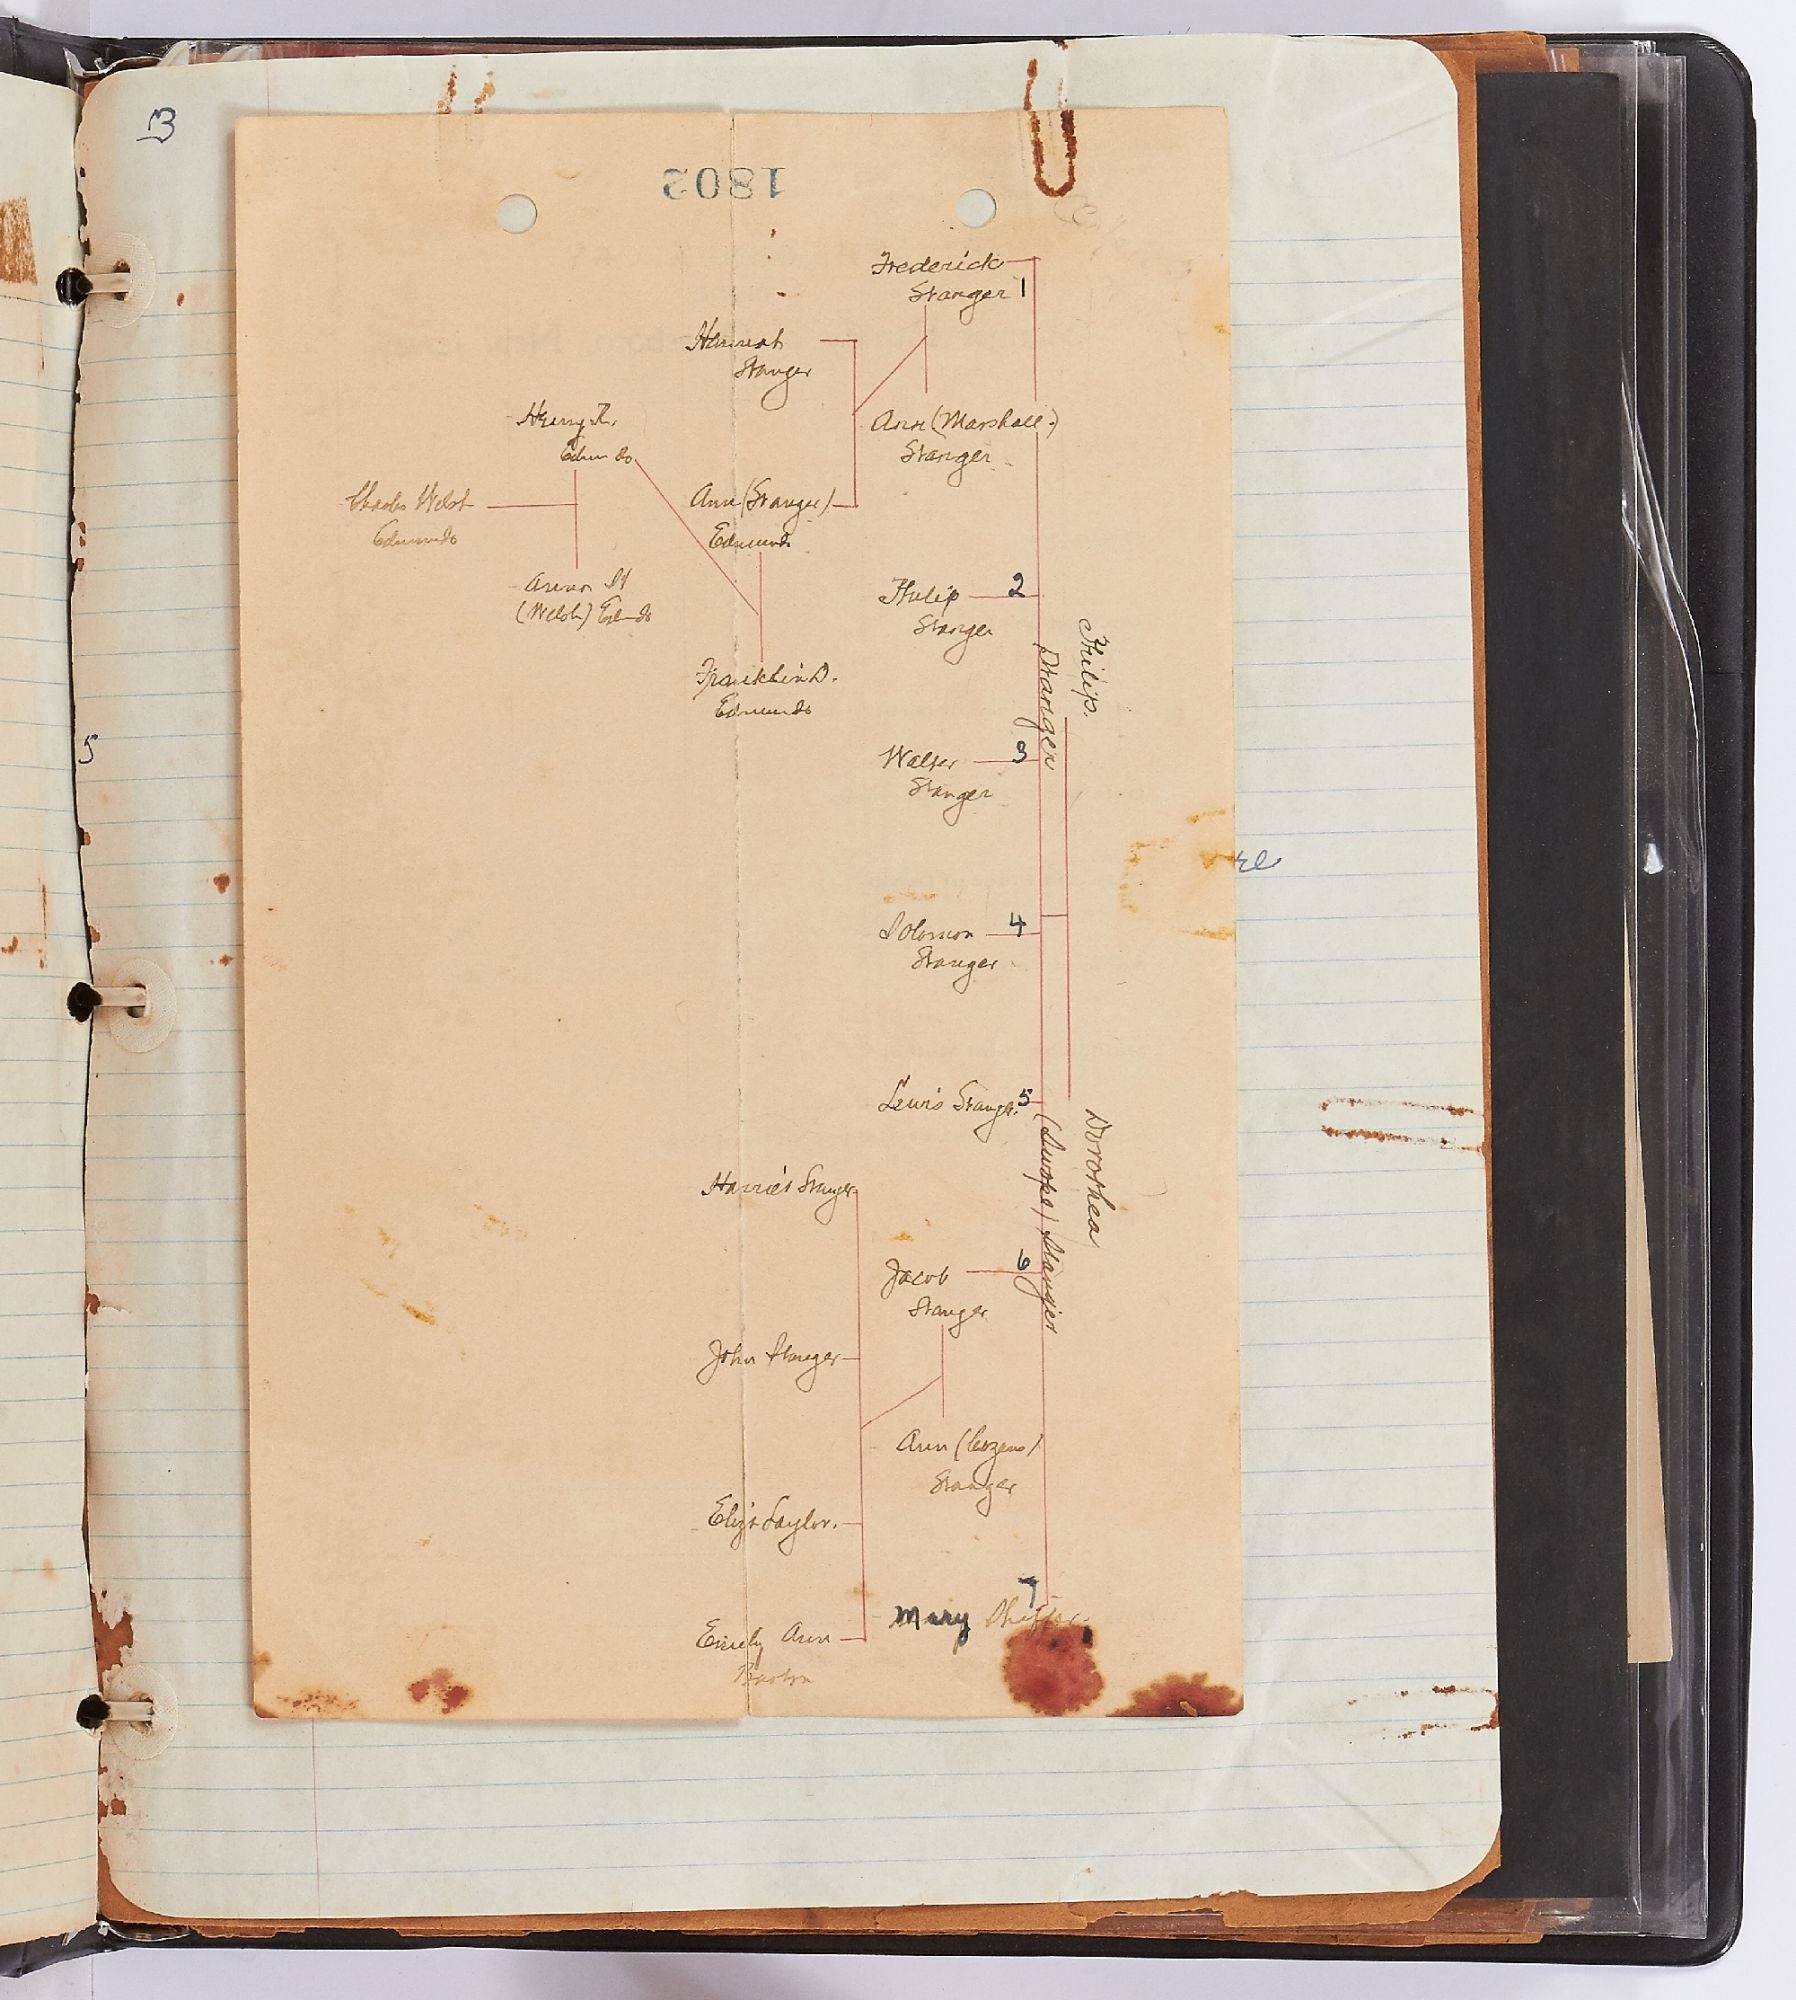 13
1802
Frederick
Stanger 1
Hannah
Stanger
Henry R.
Edmunds
Ann (Marshall)
Stanger
Charles Welsh
Edmunds
Ann (Stanger)
Edmunds
Anna M
(Welsh) Edmds
Philip 2
Stanger
Philip.
Stanger
Franklin D.
Edmunds
5
Walter 3
Stanger
re
Solomon 4
Stanger
Lewis Stanger 5
Dorothea
(Swope) Stanger
Harriet Stanger
Jacob 6
Stanger
John Stanger
Ann (Cozens)
Stanger
Eliz Taylor.
7
Mary
Emely Ann